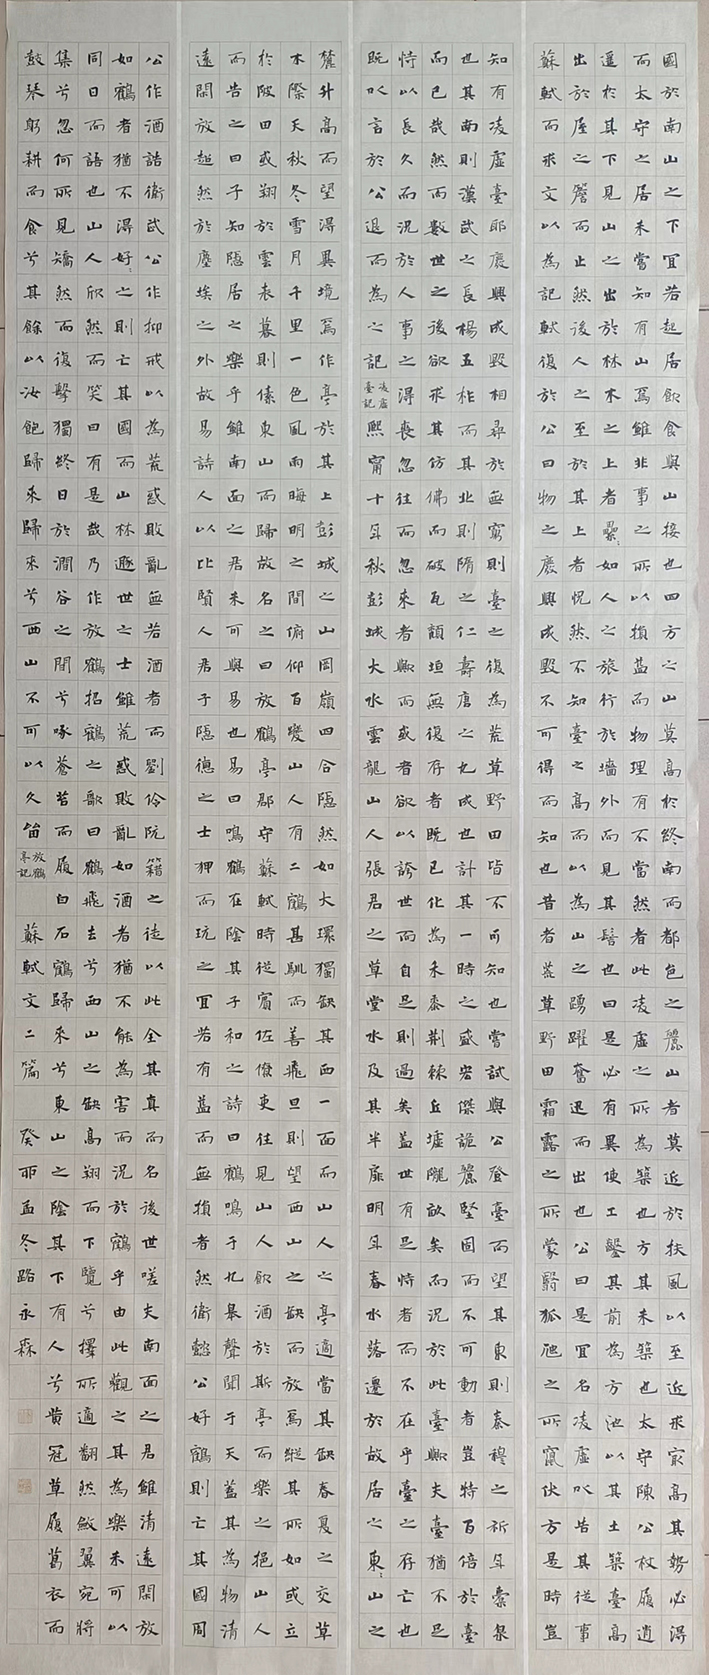 國於南山之下宜若起居飲食與山接也四方之山莫高於終南而都邑之麗山者莫近於扶風以至近求最高其勢必得
而太守之居未嘗知有山焉雖非事之所以損益而物理有不當然者此凌虛之所為築也方其未築也太守陳公杖履逍
遥於其下見山之出於林木之上者纍〻如人之旅行於墻外而見其髻也曰是必有異使工鑿其前為方池以其土築臺高
出於屋之簷而止然後人之至於其上者怳然不知臺之高而以為山之踴躍奮迅而出也公曰是宜名凌虛以告其從事
蘇軾而求文以為記軾復於公曰物之廢興成毀不可得而知也昔者荒草野田霜露之所蒙翳狐虺之所竄伏方是時豈
知有凌虛臺耶廢興成毀相尋於無窮則臺之復為荒草野田皆不可知也嘗試與公登臺而望其東則秦穆之祈年橐泉
也其南則漢武之長楊五柞而其北則隋之仁壽唐之九成也計其一時之盛宏傑詭麗堅固而不可動者豈特百倍於臺
而已哉然而數世之後欲求其仿佛而破瓦頹垣無復存者既已化為禾黍荊棘丘墟隴畝矣而況於此臺歟夫臺猶不足
恃以長久而況於人事之得喪忽往而忽來者歟而或者欲以誇世而自足則過矣蓋世有足恃者而不在乎臺之存亡也
既以言於公退而為之記 凌虛臺記 熙甯十年秋彭城大水雲龍山人張君之草堂水及其半扉明年春水落遷於故居之東〻山之
麓升高而望得異境焉作亭於其上彭城之山岡嶺四合隱然如大環獨缺其西一面而山人之亭適當其缺春夏之交草
木際天秋冬雪月千里一色風雨晦明之間俯仰百變山人有二鶴甚馴而善飛旦則望西山之缺而放焉縱其所如或立
於陂田或翔於雲表暮則傃東山而歸故名之曰放鶴亭郡守蘇軾時從賓佐僚吏往見山人飲酒於斯亭而樂之挹山人
而告之曰子知隱居之樂乎雖南面之君未可與易也易曰鳴鶴在陰其子和之詩曰鶴鳴于九皋聲聞于天蓋其為物清
遠閑放超然於塵埃之外故易詩人以比賢人君子隱德之士狎而玩之宜若有益而無損者然衛懿公好鶴則亡其國周
公作酒誥衛武公作抑戒以為荒惑敗亂無若酒者而劉伶阮籍之徒以此全其真而名後世嗟夫南面之君雖清遠閑放
如鶴者猶不得好〻之則亡其國而山林遯世之士雖荒惑敗亂如酒者猶不能為害而況於鶴乎由此觀之其為樂未可以
同日而語也山人欣然而笑曰有是哉乃作放鶴招鶴之歌曰鶴飛去兮西山之缺高翔而下覽兮擇所適翻然斂翼宛將
集兮忽何所見矯然而復擊獨終日於澗谷之間兮啄蒼苔而履白石鶴歸來兮東山之陰其下有人兮黃冠草履葛衣而
鼓琴躬耕而食兮其餘以汝飽歸來歸來兮西山不可以久留 放鶴亭記 蘇軾文二篇 癸卯孟冬路永森